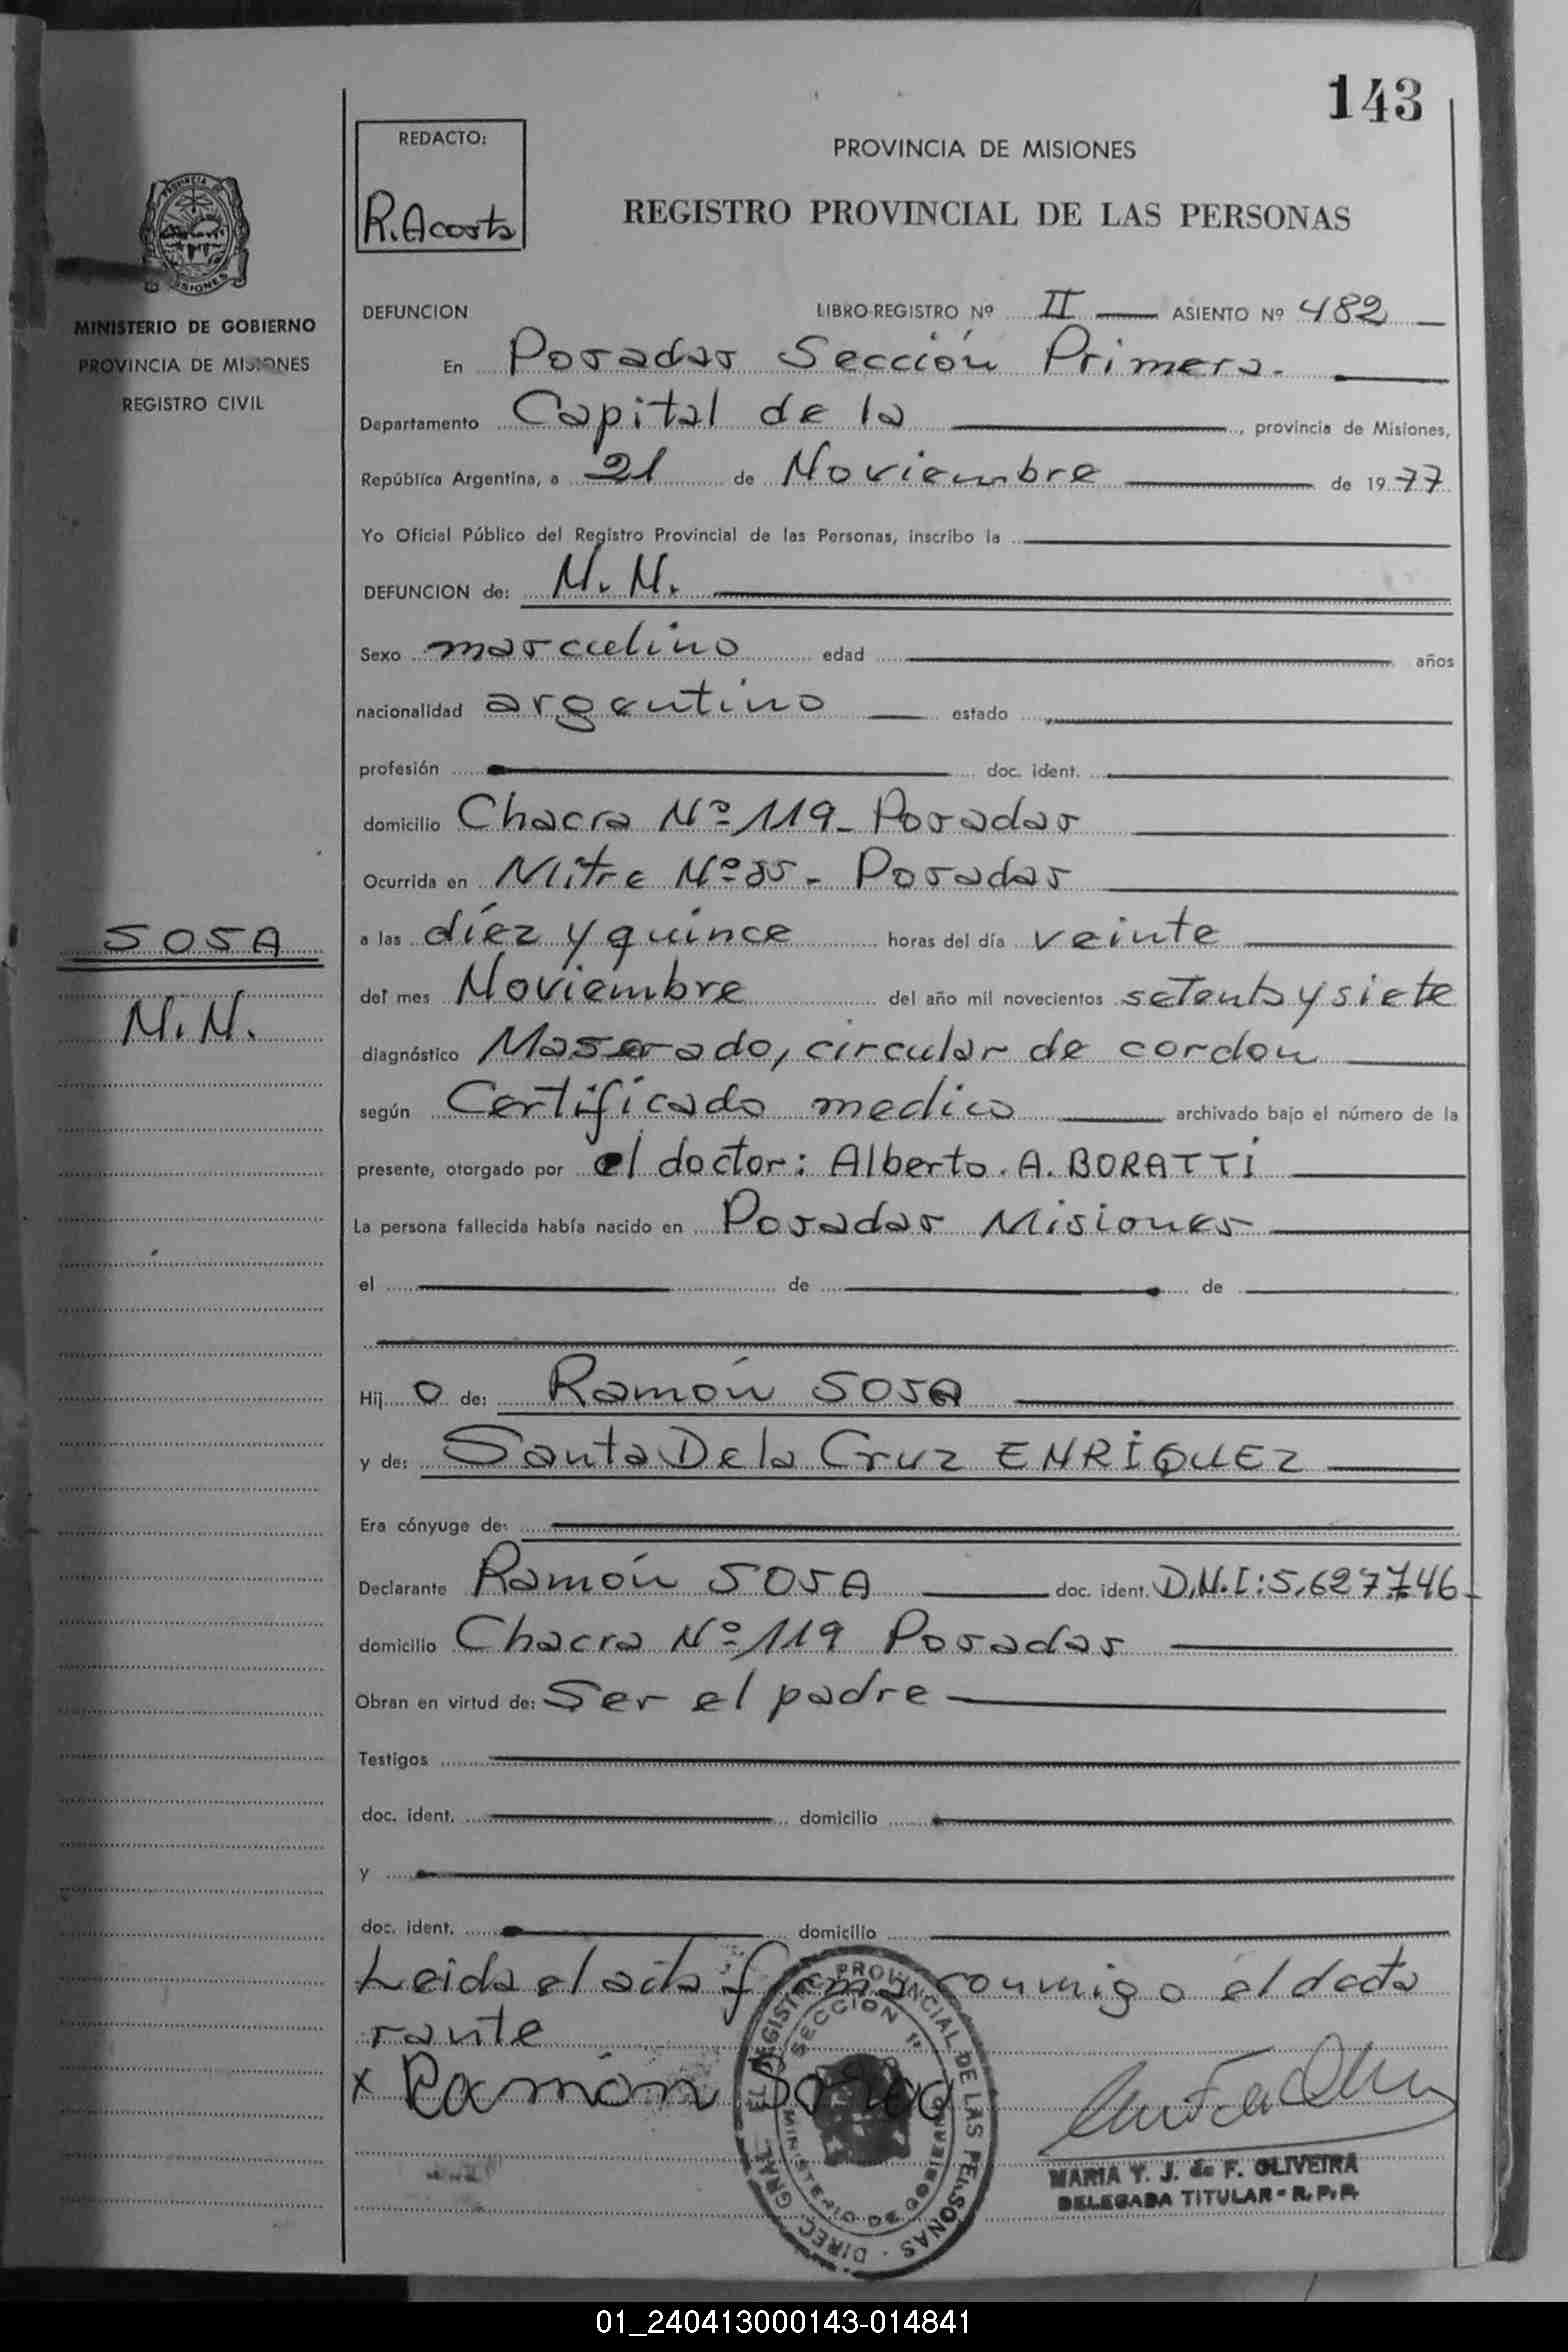 143
REDACTO:
R. Acosta
PROVINCIA DE MISIONES
REGISTRO PROVINCIAL DE LAS PERSONAS
MINISTERIO DE GOBIERNO
PROVINCIA DE MISIONES
REGISTRO CIVIL
DEFUNCION LIBRO-REGISTRO Nº II ASIENTO Nº 482
En Posadas Sección Primera.
Departamento Capital de la , provincia de Misiones,
República Argentina, a 21 de Noviembre de 1977
Yo Oficial Público del Registro Provincial de las Personas, inscribo la
DEFUNCION de: N. N.
Sexo masculino edad años
nacionalidad argentino estado
profesión doc. ident.
domicilio Chacra Nº 119 - Posadas
Ocurrida en Mitre Nº 85 - Posadas
a las díez y quince horas del día veinte
del mes Noviembre del año mil novecientos setenta y siete
diagnóstico Maserado, circular de cordon
según Certificado medico archivado bajo el número de la
presente, otorgado por el doctor: Alberto. A. BORATTI
La persona fallecida había nacido en Posadas Misiones
el de de
Hij o de: Ramón SOSA
y de: Santa De la Cruz ENRIQUEZ
Era cónyuge de:
Declarante Ramón SOSA doc. ident. D.N.I: 5.627.746-
domicilio Chacra Nº 119 Posadas
Obran en virtud de: Ser el padre
Testigos
doc. ident. domicilio
y
doc. ident. domicilio
Leida el acta firma conmigo el decla
rante
x Ramón Sosa
SOSA
N. N.
DIREC. GRAL. DEL REGISTRO PROVINCIAL DE LAS PERSONAS
SECCION 1ª
MINISTERIO DE GOBIERNO
MARIA Y. J. de F. OLIVEIRA
DELEGADA TITULAR - R. P. P.
01_240413000143-014841